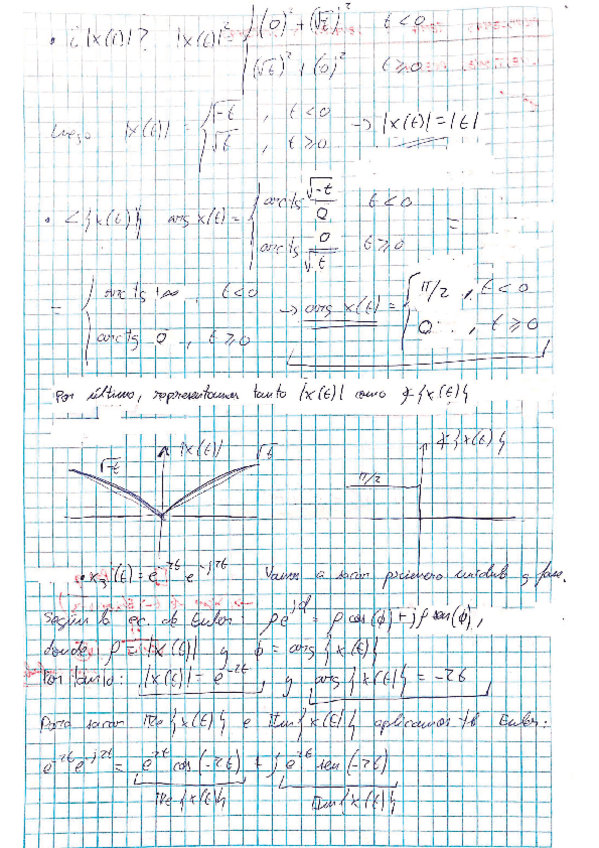 • ¿|x(t)|? |x(t)|² = { (0)² + (√t)² t<0
(√t)² + (0)² t≥0
Luego |x(t)| = { √-t , t<0
√t , t≥0 → |x(t)| = |t|
• ∢{x(t)} arg x(t) = { arctg √-t/0 t<0
arctg 0/√t t≥0 =
= { arctg +∞ , t<0
arctg 0 , t≥0 → arg x(t) = { π/2 , t<0
0 , t≥0
Por último, representamos tanto |x(t)| como ∢{x(t)}
√-t |x(t)| √t
π/2 ∢{x(t)}
• x₃(t) = e^-2t e^-j2t Vamos a sacar primero módulo y fase.
Según la ec. de Euler: ρe^jϕ = ρ cos(ϕ) + jρ sen(ϕ),
donde ρ = |x(t)| y ϕ = arg{x(t)}
Por tanto: |x(t)| = e^-2t y arg{x(t)} = -2t
Para sacar Re{x(t)} e Im{x(t)} aplicamos la Euler:
e^-2t e^-j2t = e^-2t cos(-2t) + j e^-2t sen(-2t)
Re{x(t)} Im{x(t)}